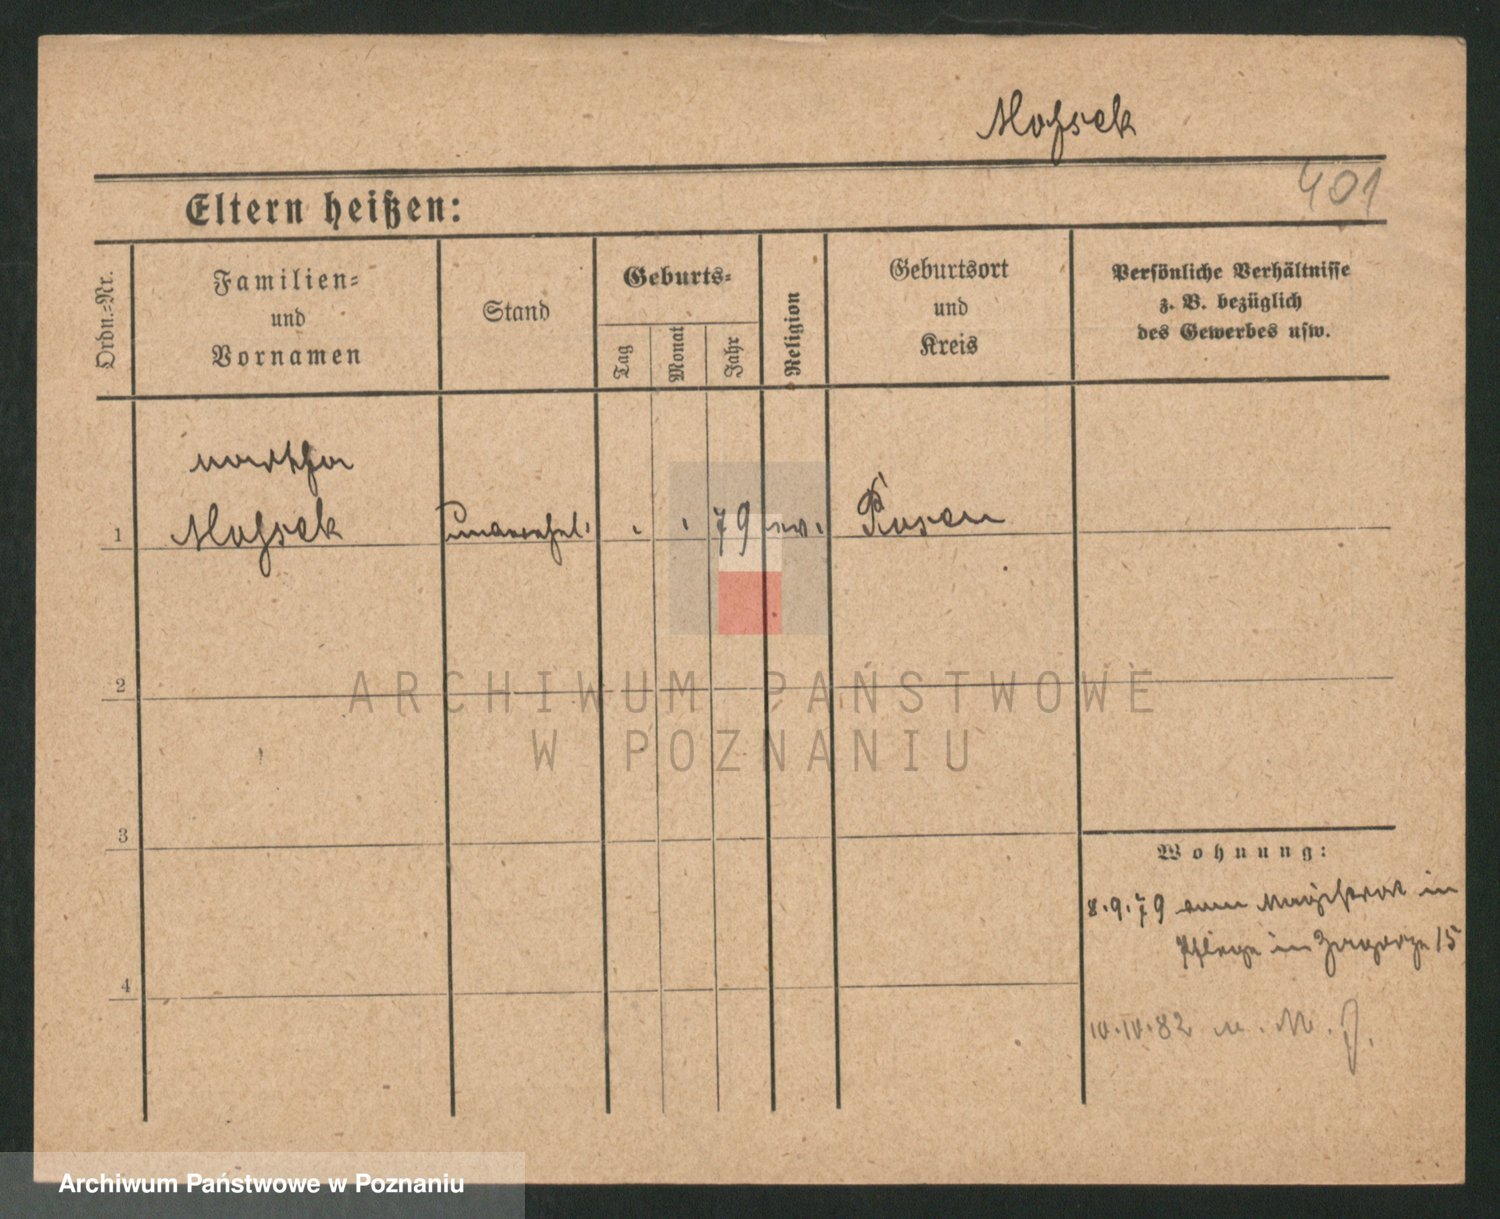 Mofsek
401
Eltern heißen:
Ordn.=Nr.
Familien=
und
Vornamen
Stand
Geburts=
Tag
Monat
Jahr
Religion
Geburtsort
und
Kreis
Persönliche Verhältnisse
z. B. bezüglich
des Gewerbes usw.
martha
1 Mofsek unverehel. 79 Posen
2
ARCHIWUM PAŃSTWOWE
W POZNANIU
3
Wohnung:
8.9.79 vom Magistrat in
Pflege in Zagorze 15
4
10.10.82
Archiwum Państwowe w Poznaniu